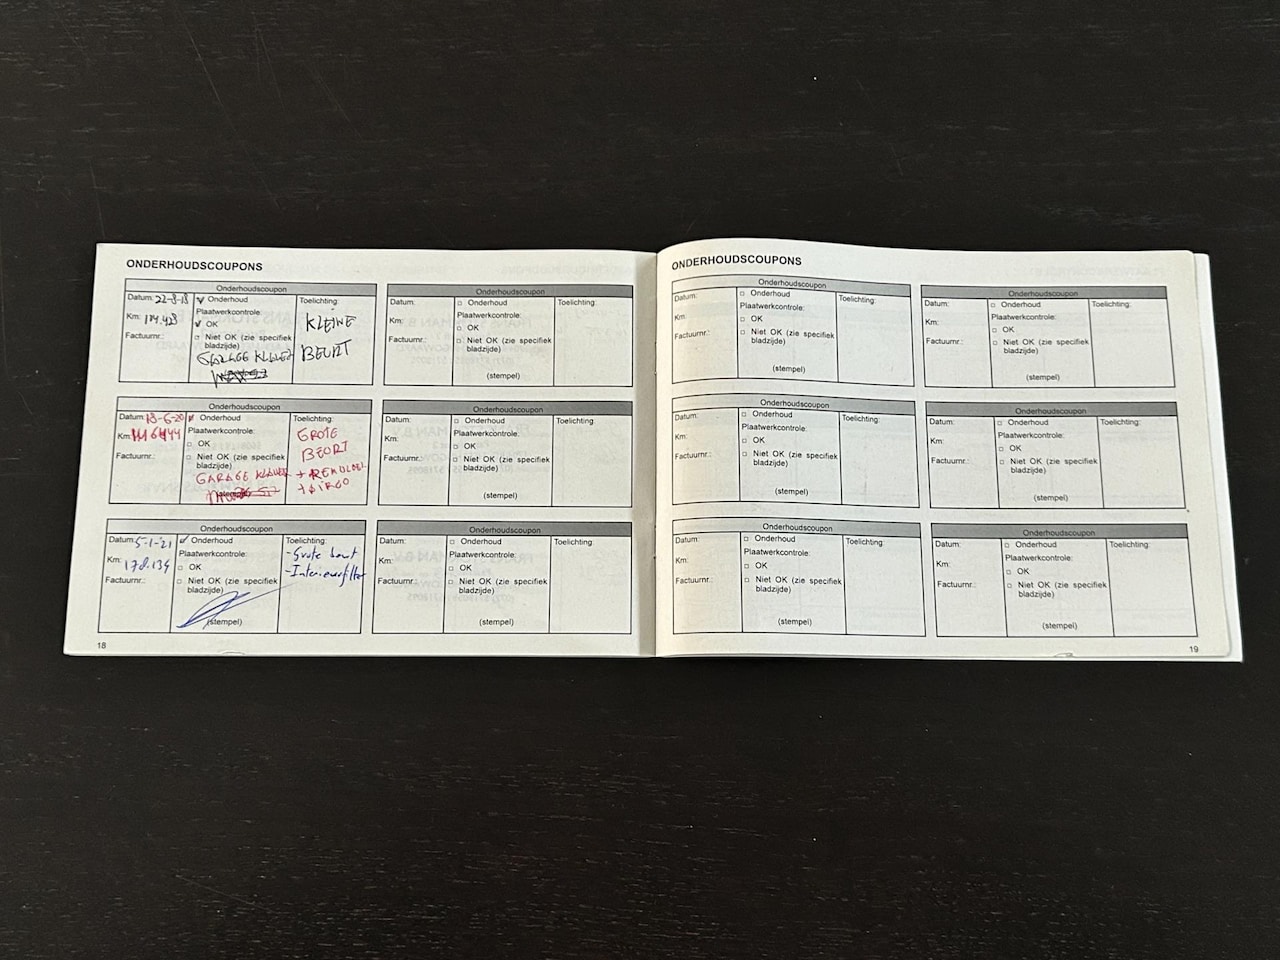 ONDERHOUDSCOUPONS
Onderhoudscoupon
Datum: 22-8-18
Km:
Factuurnr.:
Onderhoud
Plaatwerkcontrole:
OK
Niet OK (zie specifiek
bladzijde)
GARAGE
Toelichting:
KLEINE
BEURT
Onderhoudscoupon
Datum:
Km:
Factuurnr.:
Onderhoud
Plaatwerkcontrole:
OK
Niet OK (zie specifiek
bladzijde)
(stempel)
Toelichting:
Onderhoudscoupon
Datum: 18-6-20
Km:
Factuurnr.:
Onderhoud
Plaatwerkcontrole:
OK
Niet OK (zie specifiek
bladzijde)
GARAGE
Toelichting:
GROTE
BEURT
Onderhoudscoupon
Datum:
Km:
Factuurnr.:
Onderhoud
Plaatwerkcontrole:
OK
Niet OK (zie specifiek
bladzijde)
(stempel)
Toelichting:
Onderhoudscoupon
Datum: 5-1-'21
Km: 178.134
Factuurnr.:
Onderhoud
Plaatwerkcontrole:
OK
Niet OK (zie specifiek
bladzijde)
(stempel)
Toelichting:
-Grote beurt
-Interieurfilter
Onderhoudscoupon
Datum:
Km:
Factuurnr.:
Onderhoud
Plaatwerkcontrole:
OK
Niet OK (zie specifiek
bladzijde)
(stempel)
Toelichting:
18
ONDERHOUDSCOUPONS
Onderhoudscoupon
Datum:
Km:
Factuurnr.:
Onderhoud
Plaatwerkcontrole:
OK
Niet OK (zie specifiek
bladzijde)
(stempel)
Toelichting:
Onderhoudscoupon
Datum:
Km:
Factuurnr.:
Onderhoud
Plaatwerkcontrole:
OK
Niet OK (zie specifiek
bladzijde)
(stempel)
Toelichting:
Onderhoudscoupon
Datum:
Km:
Factuurnr.:
Onderhoud
Plaatwerkcontrole:
OK
Niet OK (zie specifiek
bladzijde)
(stempel)
Toelichting:
Onderhoudscoupon
Datum:
Km:
Factuurnr.:
Onderhoud
Plaatwerkcontrole:
OK
Niet OK (zie specifiek
bladzijde)
(stempel)
Toelichting:
Onderhoudscoupon
Datum:
Km:
Factuurnr.:
Onderhoud
Plaatwerkcontrole:
OK
Niet OK (zie specifiek
bladzijde)
(stempel)
Toelichting:
Onderhoudscoupon
Datum:
Km:
Factuurnr.:
Onderhoud
Plaatwerkcontrole:
OK
Niet OK (zie specifiek
bladzijde)
(stempel)
Toelichting:
19